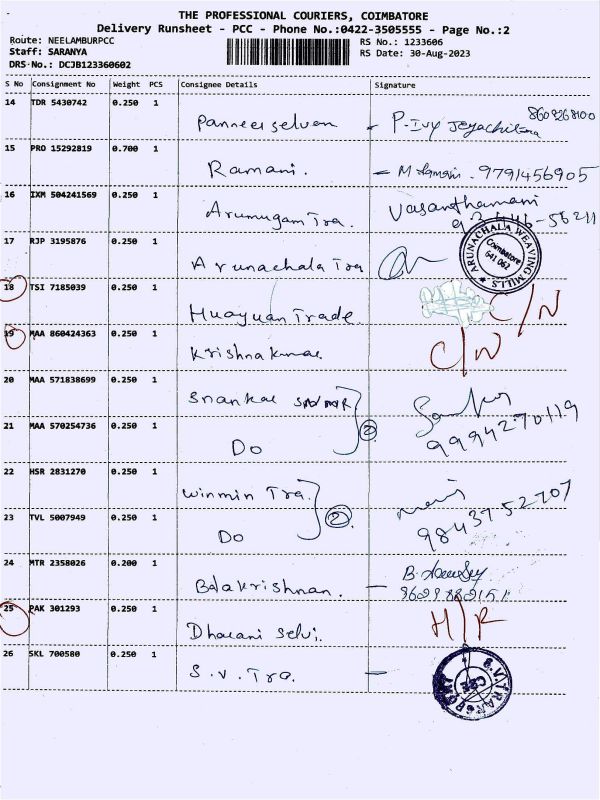 THE PROFESSIONAL COURIERS, COIMBATORE
Delivery Runsheet - PCC - Phone No.:0422-3505555 - Page No.:2
Route: NEELAMBURPCC RS No.: 1233606
Staff: SARANYA RS Date: 30-Aug-2023
DRS No.: DCJB123360602
S No Consignment No Weight PCS Consignee Details Signature
14 TDR 5430742 0.250 1
Panneerselvam - P. Ivy 8609268100
15 PRO 15292819 0.700 1
Ramani. - M Ramani. 9791456905
16 IXM 504241569 0.250 1
Arumugam Tra. Vasanthamani
17 RJP 3195876 0.250 1
Arunachala Tra
ARUNACHALA WEAVING MILLS
Coimbatore
641 062
18 TSI 7185039 0.250 1
Huayuan Trade. C/N
19 MAA 860424363 0.250 1
Krishnakumar C/N
20 MAA 571838699 0.250 1
Shankar
21 MAA 570254736 0.250 1
Do 2 9994270119
22 HSR 2831270 0.250 1
Winmin Tra.
23 TVL 5007949 0.250 1
Do 2 98437 52707
24 MTR 2358026 0.200 1
Balakrishnan. - B.
25 PAK 301293 0.250 1
Dharani Selvi. H/R
26 SKL 700580 0.250 1
S.V. Tra. -
S.V.TRANSPORT
CBE